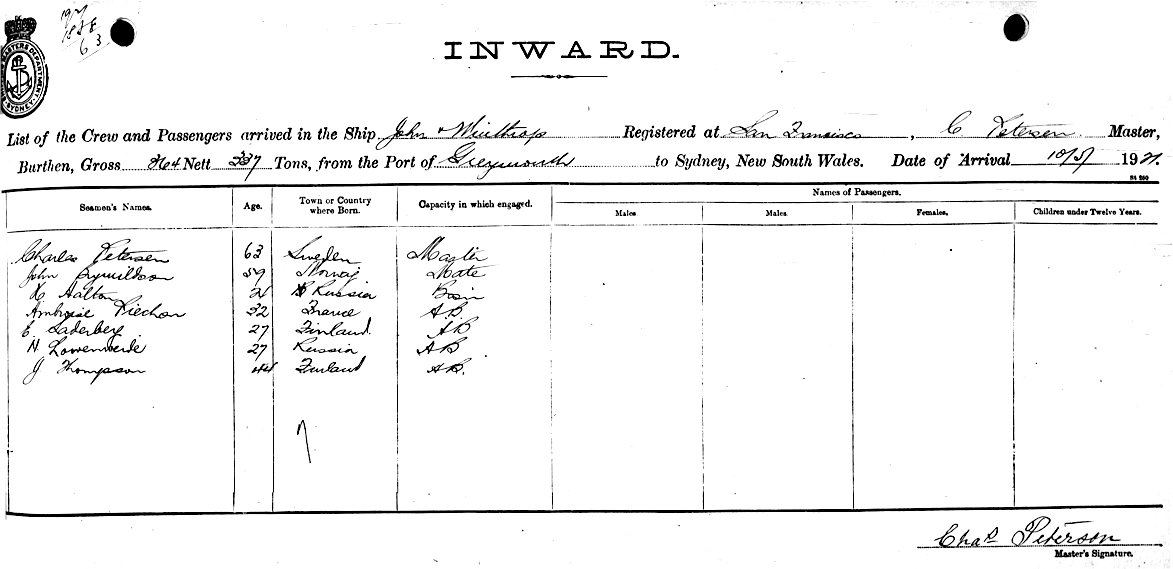 63
MASTERS DEPARTMENT
SYDNEY
INWARD.
List of the Crew and Passengers arrived in the Ship John Winthrop Registered at San Francisco, C Petersen Master,
Burthen, Gross Nett 337 Tons, from the Port of Greymouth to Sydney, New South Wales. Date of Arrival 10/5/ 1921.
SA 260
Seamen's Names. Age. Town or Country where Born. Capacity in which engaged. Names of Passengers.
Males. Males. Females. Children under Twelve Years.
Charles Petersen 63 Sweden Master
John 59 Norway Mate
K Aalton Russia Bosin
Ambroise Piechon 32 France A.B.
E Saderberg 27 Finland AB
N 27 Russia AB
J Thompson 44 Finland AB.
7
Chas Peterson
Master's Signature.